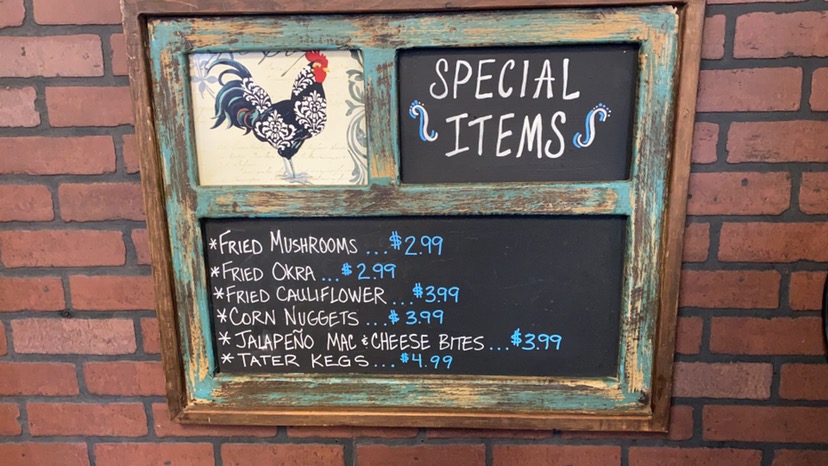 SPECIAL
ITEMS
*FRIED MUSHROOMS...$2.99
*FRIED OKRA...$2.99
*FRIED CAULIFLOWER...$3.99
*CORN NUGGETS...$3.99
*JALAPEÑO MAC & CHEESE BITES...$3.99
*TATER KEGS...$4.99